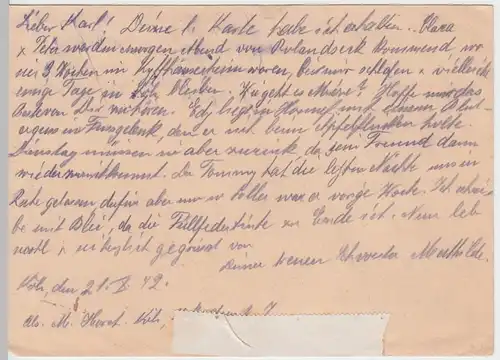 Lieber Karl! Deine l. Karte habe ich erhalten. Clara
x Peter werden morgen Abend von Rolandseck kommend, wo
sie 3 Wochen im Kyffhäuserheim waren, bei mir schlafen x vielleicht
einige Tage zu bleiben. Wie geht es Mieze? Hoffe nur das
Beste von Dir zu hören. liegt im Hommel mit einem Blut-
erguss im Fussgelenk, den er sich beim Apfelpflücken holte.
Dienstag müssen sie aber zurück da sein Freund dann
wieder kommt. Der Tommy hat die letzten Nächte uns in
Ruhe gelassen dafür aber war so toller war er vorige Woche. Ich schrei-
be mit Blei, da die Füllfedertinte zu Ende ist. Nun leb
wohl x sei herzlich gegrüsst von
Deiner treuen Schwester Mathilde.
Köln, den 21. X. 42.
Abs. M. Horst. Köln,